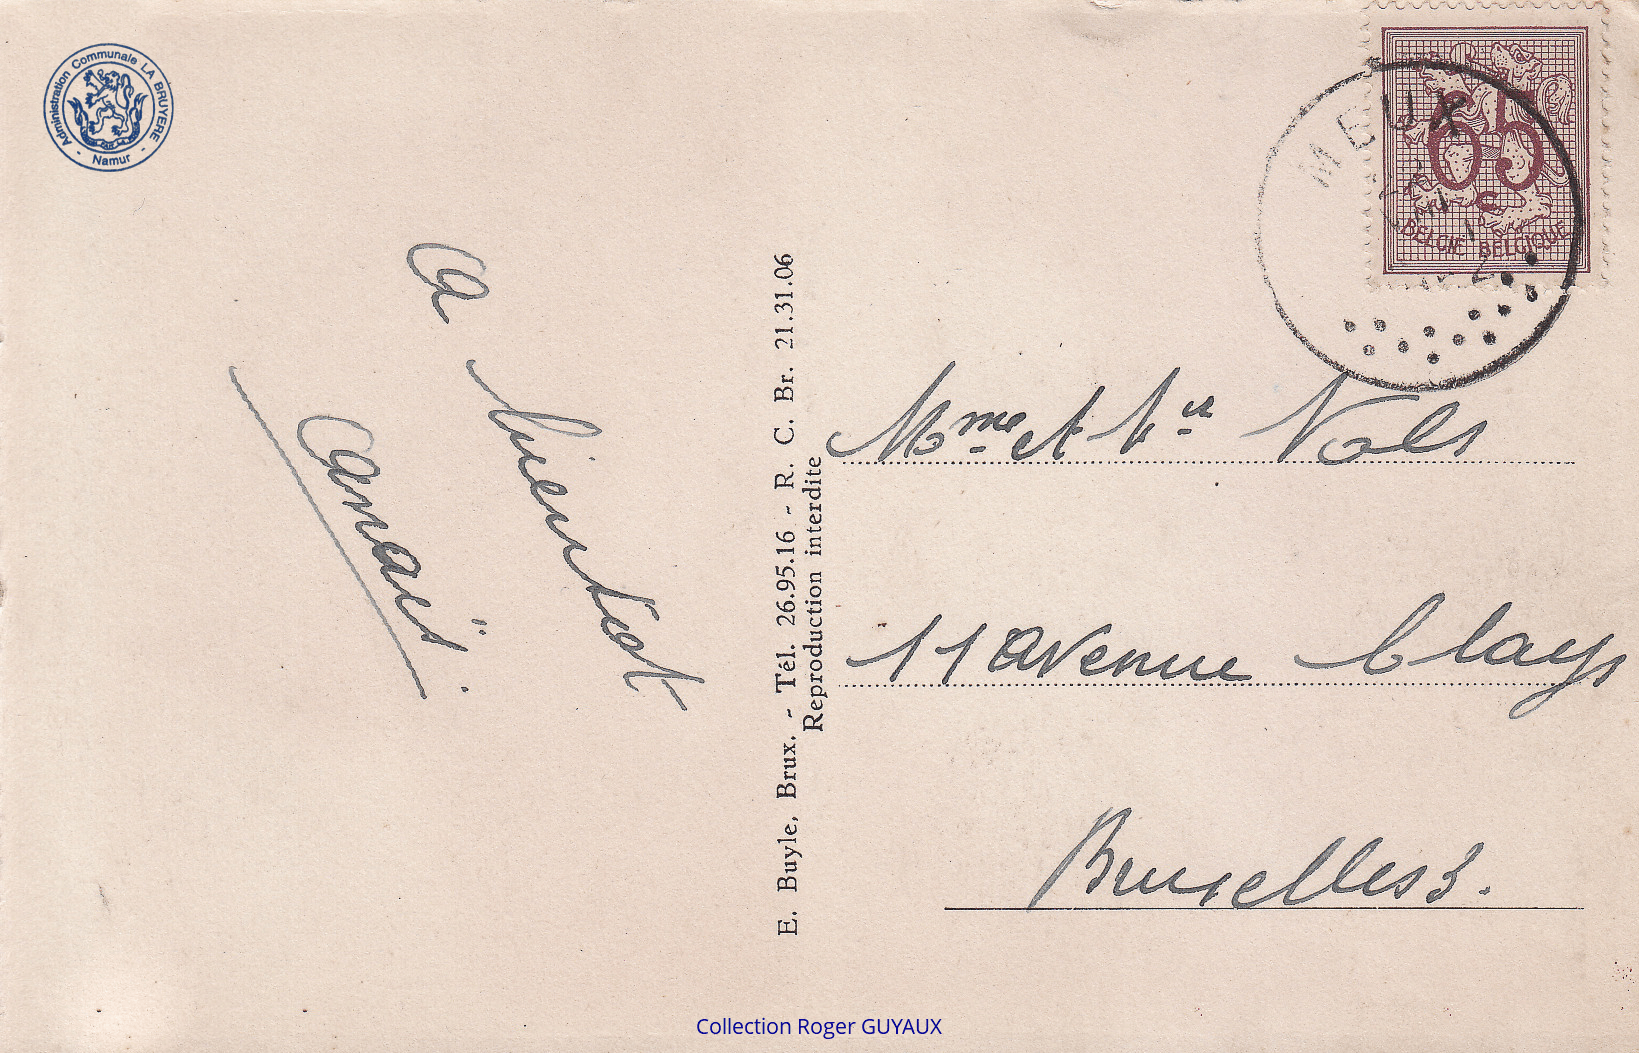 Administration Communale LA BRUYERE
- Namur -
MEUX
65
BELGIË BELGIQUE
A bientot
E. Buyle, Brux. - Tél. 26.95.16 - R. C. Br. 21.31.06
Reproduction interdite
Mme et Mr Nols
11 avenue Clays
Bruxelles 3.
Collection Roger GUYAUX